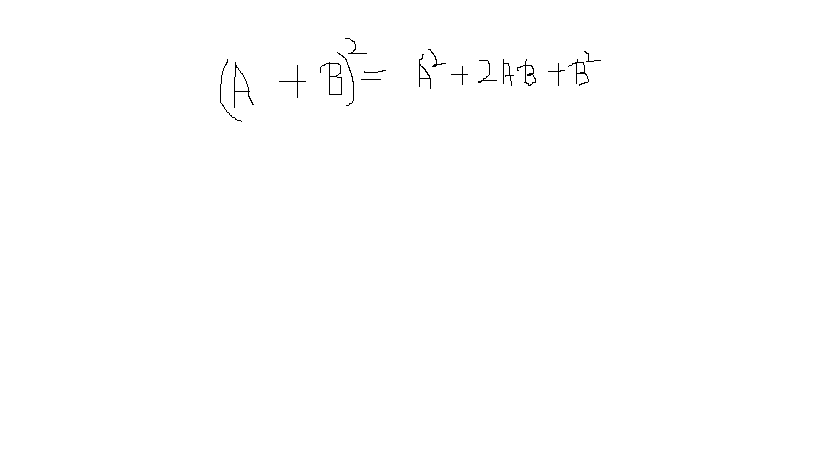 (A + B)² = A² + 2AB + B²